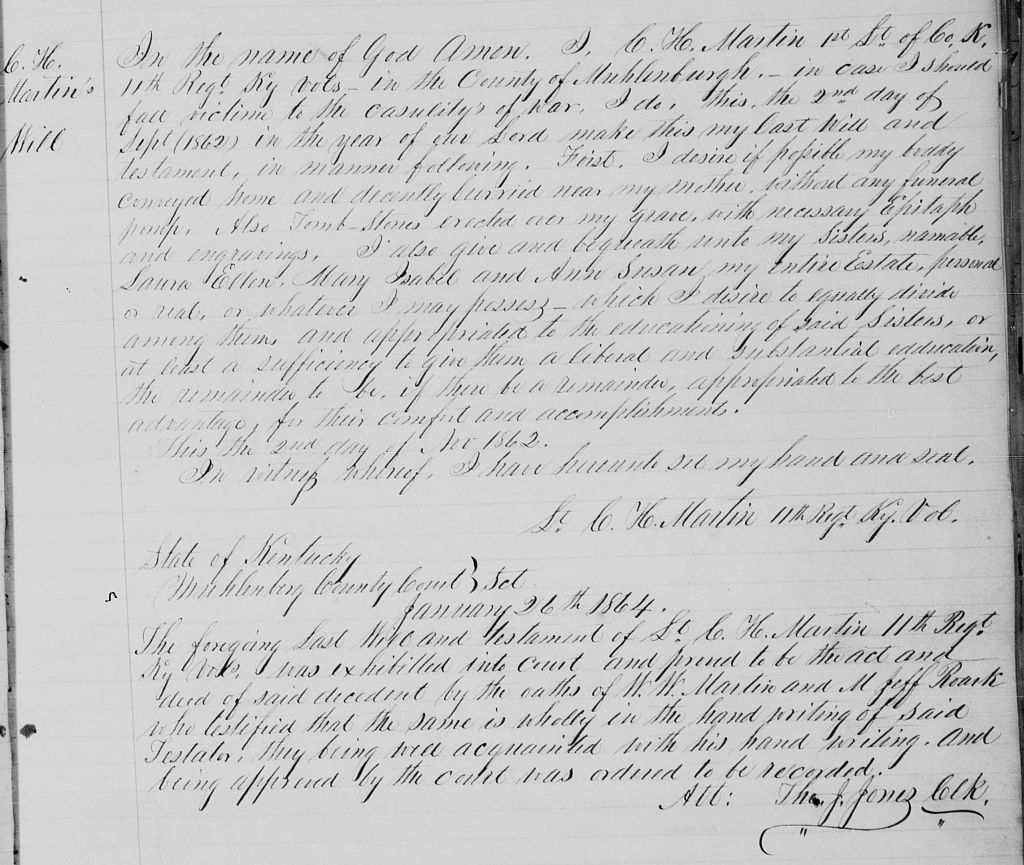 C. H.
Martin's
Will
In the name of God Amen. I, C. H. Martin 1st Lt of Co, K,
11th Regt Ky Vols – in the County of Muhlenburgh, – in case I should
fall victime to the casulity's of war, I do, this, the 2nd day of
Sept (1862) in the year of our Lord make this my Last Will and
testament, in manner following. First, I desire if possible my boddy
conveyed home and decently burried near my mother, without any funeral
pomp. Also Tomb-Stones erected over my grave, with necessary Epitaph
and engravings. I also give and bequeath unto my Sisters, namable,
Laura Ellen, Mary Isabel and Ann Susan, my entire Estate, personal
or real, or whatever I may possess – which I desire to equally divide
among them, and appropriated to the educationing of said Sisters, or
at least a sufficiency to give them a liberal and substantial edducation,
the remainder to be, if there be a remainder, appropriated to the best
advantage, for their comfort and accomplishments.
This the 2nd day of Nov 1862.
In witness whereof, I have hereunto set my hand and seal.
Lt. C. H. Martin 11th Regt Ky. Vol.
State of Kentucky
Muhlenberg County Court } Sct
January 26th 1864.
The foregoing Last Will and testament of Lt. C. H. Martin 11th Regt
Ky Vols, was exhibitted into court and proud to be the act and
deed of said decedent by the oaths of W. W. Martin and M Jeff Roark
who testified that the same is wholly in the hand writing of said
Testator, they being well acquainted with his hand writing. And
being approved by the court was ordered to be recorded.
Att: Tho. J. Jones Clk.